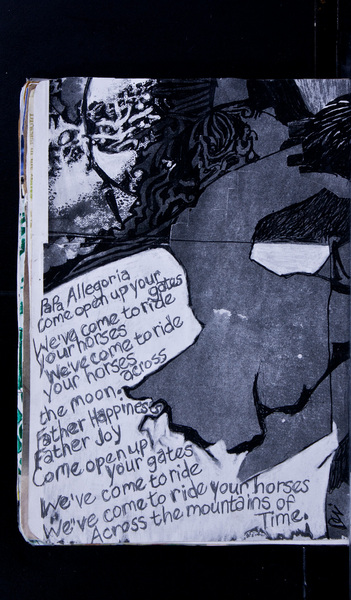 Papa Allegoria
come open up your
gates
We've come to ride
your horses
We've come to ride
your horses
across
the moon.
Father Happiness
Father Joy
Come open up
your gates
We've come to ride
We've come to ride your horses
Across the mountains of
Time.